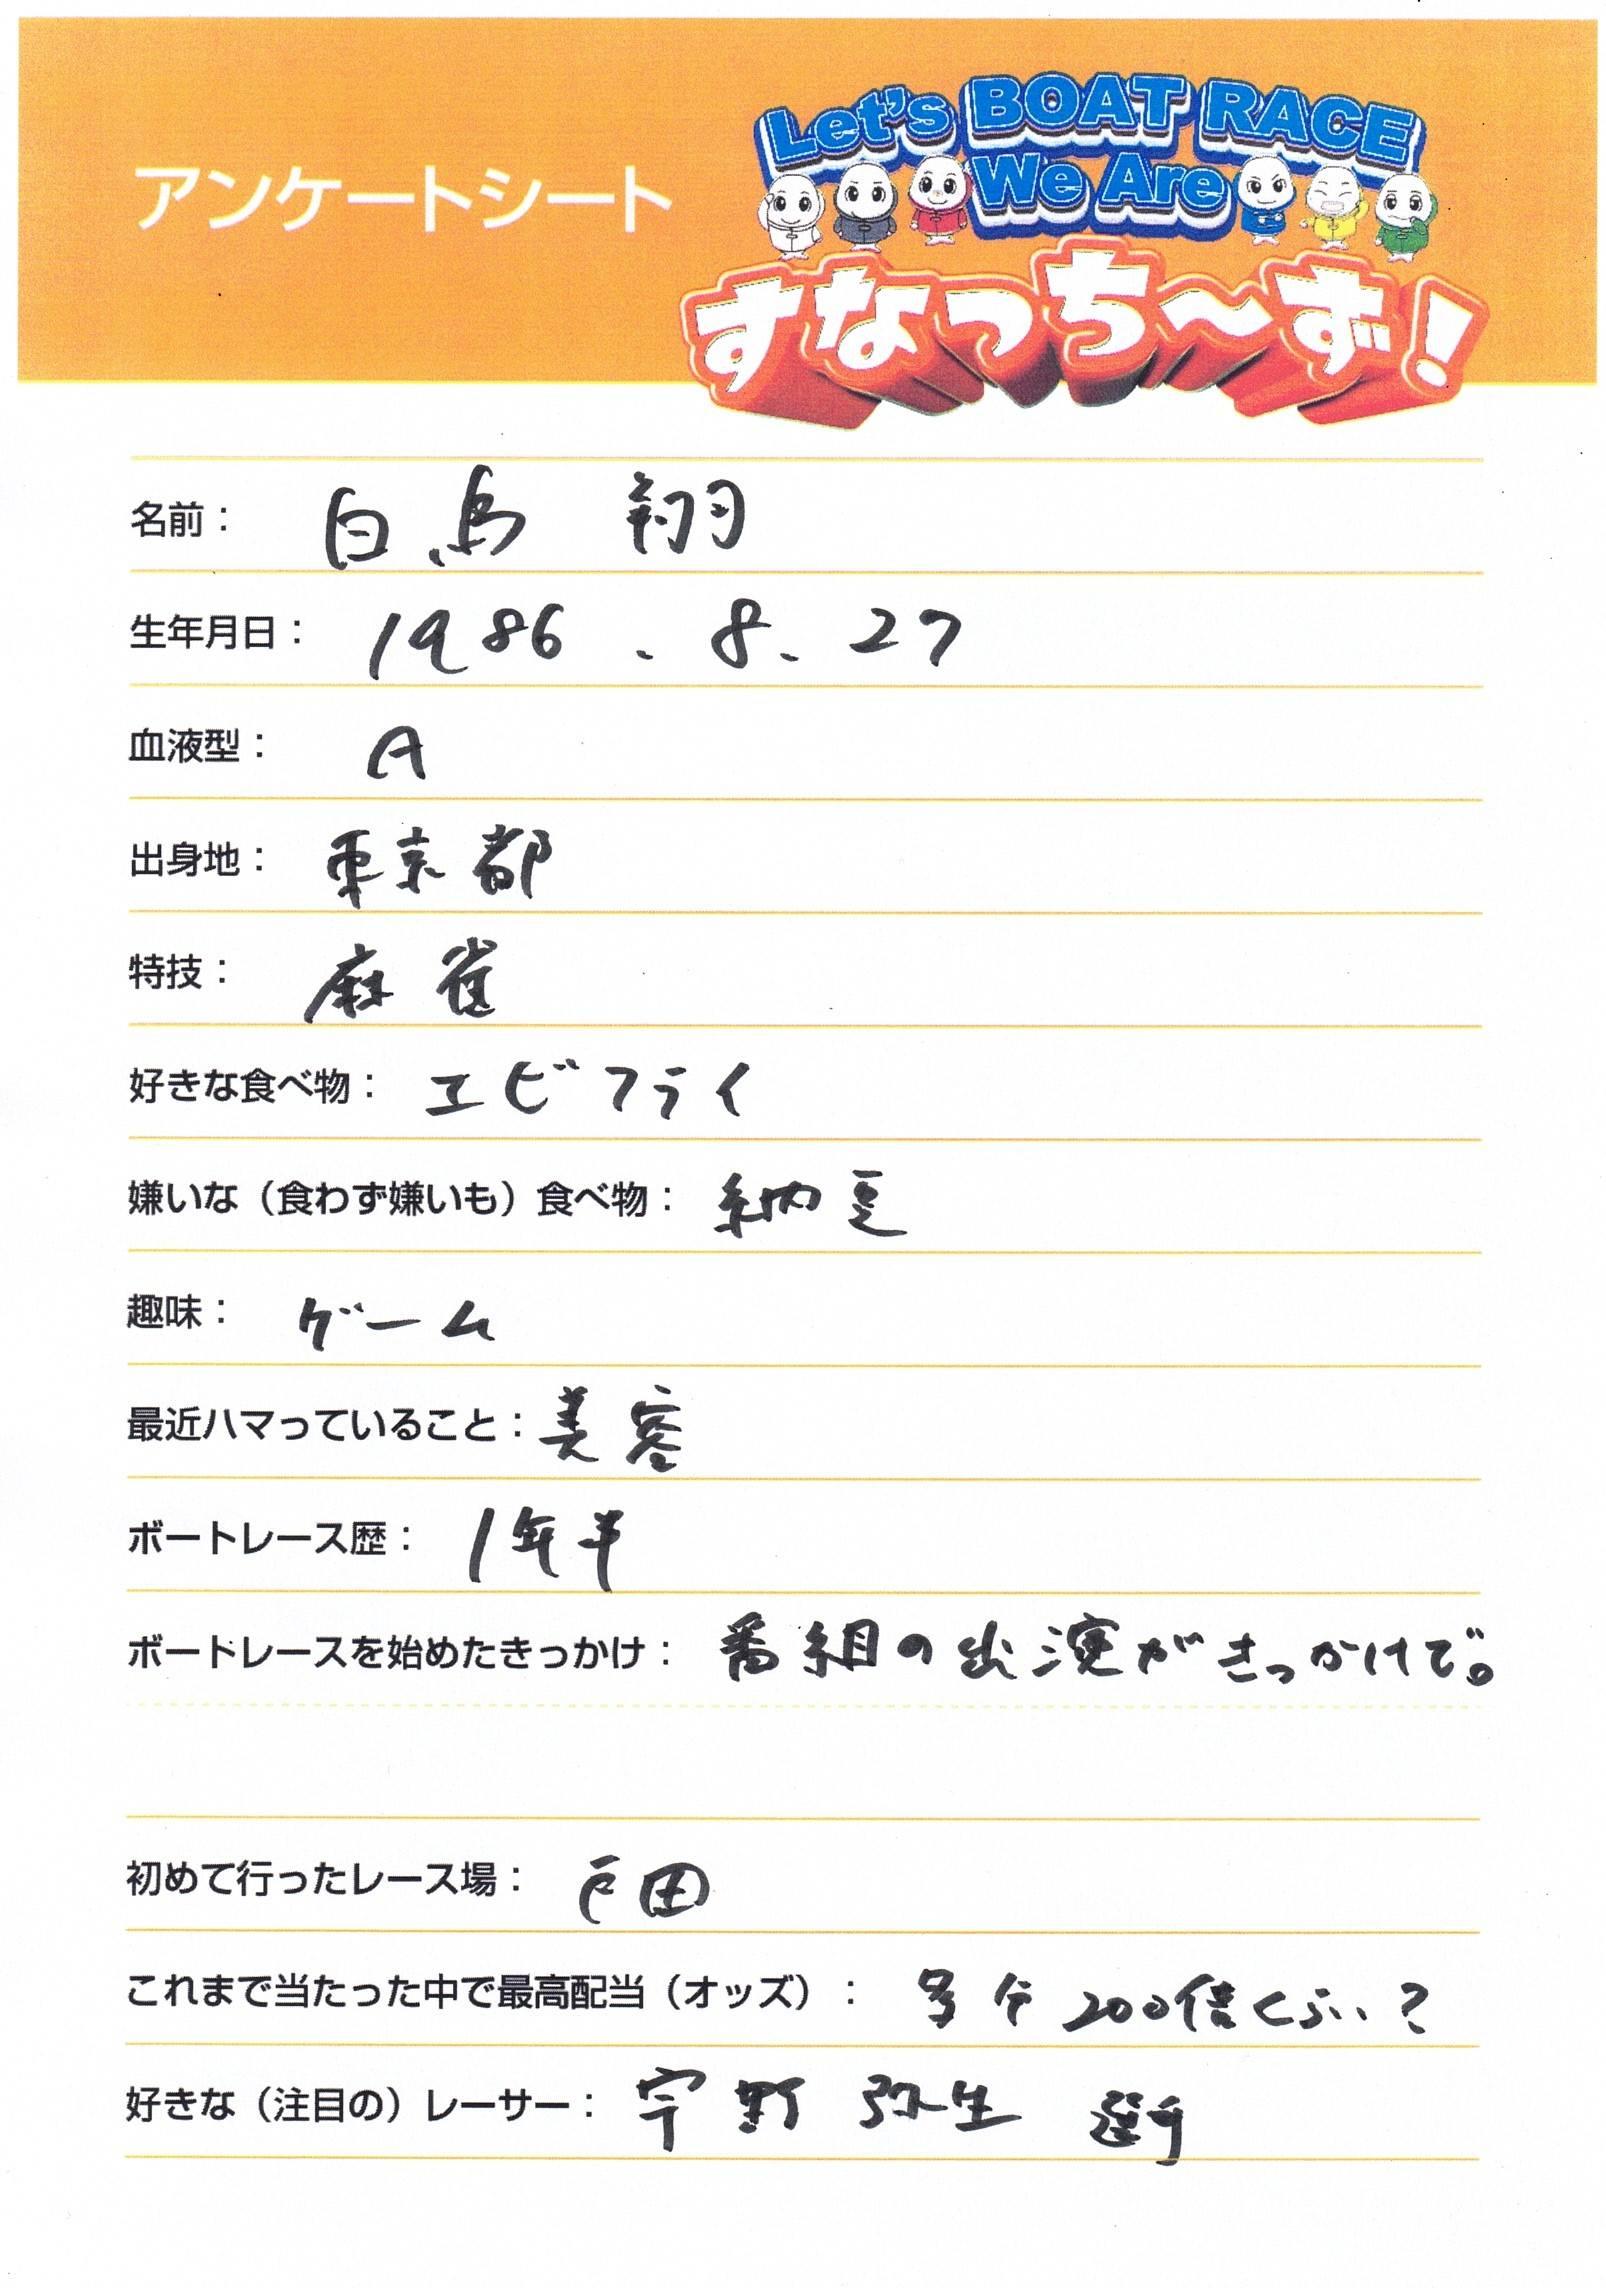 Let's BOAT RACE
アンケートシート
We Are
すなっち〜ず!
名前： 白鳥 翔
生年月日： 1986.8.27
血液型： A
出身地： 東京都
特技： 麻雀
好きな食べ物： エビフライ
嫌いな（食わず嫌いも）食べ物： 納豆
趣味： ゲーム
最近ハマっていること： 美容
ボートレース歴： 1年半
ボートレースを始めたきっかけ： 番組の出演がきっかけで。
初めて行ったレース場： 戸田
これまで当たった中で最高配当（オッズ）： 多分200倍くらい?
好きな（注目の）レーサー： 宇野 弥生 選手